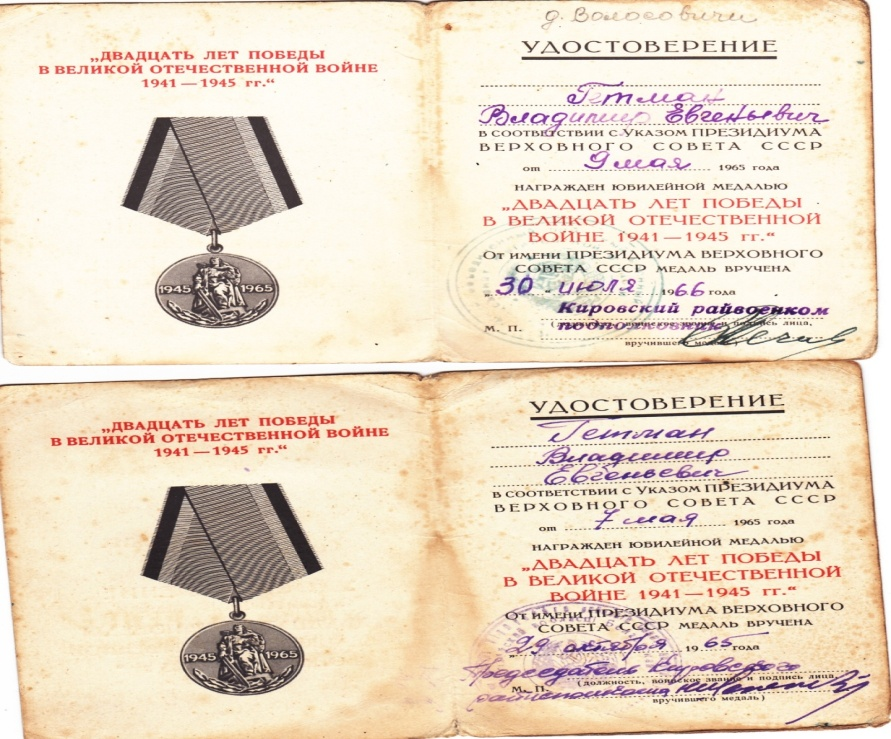 „ДВАДЦАТЬ ЛЕТ ПОБЕДЫ
В ВЕЛИКОЙ ОТЕЧЕСТВЕННОЙ ВОЙНЕ
1941—1945 гг.“
1945 1965
д. Волосовичи
УДОСТОВЕРЕНИЕ
Гетман
Владимир Евгеньевич
В СООТВЕТСТВИИ С УКАЗОМ ПРЕЗИДИУМА
ВЕРХОВНОГО СОВЕТА СССР
от 9 мая 1965 года
НАГРАЖДЕН ЮБИЛЕЙНОЙ МЕДАЛЬЮ
„ДВАДЦАТЬ ЛЕТ ПОБЕДЫ
В ВЕЛИКОЙ ОТЕЧЕСТВЕННОЙ
ВОЙНЕ 1941—1945 гг.“
От имени ПРЕЗИДИУМА ВЕРХОВНОГО
СОВЕТА СССР МЕДАЛЬ ВРУЧЕНА
„30 июля 1966 года
Кировский райвоенком
(должность, воинское звание и подпись лица,
М. П. подполковник
вручившего медаль)
„ДВАДЦАТЬ ЛЕТ ПОБЕДЫ
В ВЕЛИКОЙ ОТЕЧЕСТВЕННОЙ ВОЙНЕ
1941—1945 гг.“
1945 1965
УДОСТОВЕРЕНИЕ
Гетман
Владимир
Евгеньевич
В СООТВЕТСТВИИ С УКАЗОМ ПРЕЗИДИУМА
ВЕРХОВНОГО СОВЕТА СССР
от 7 мая 1965 года
НАГРАЖДЕН ЮБИЛЕЙНОЙ МЕДАЛЬЮ
„ДВАДЦАТЬ ЛЕТ ПОБЕДЫ
В ВЕЛИКОЙ ОТЕЧЕСТВЕННОЙ
ВОЙНЕ 1941—1945 гг.“
От имени ПРЕЗИДИУМА ВЕРХОВНОГО
СОВЕТА СССР МЕДАЛЬ ВРУЧЕНА
„29 октября 1965 года
Председатель Кировского
(должность, воинское звание и подпись лица,
М. П. райисполкома
вручившего медаль)